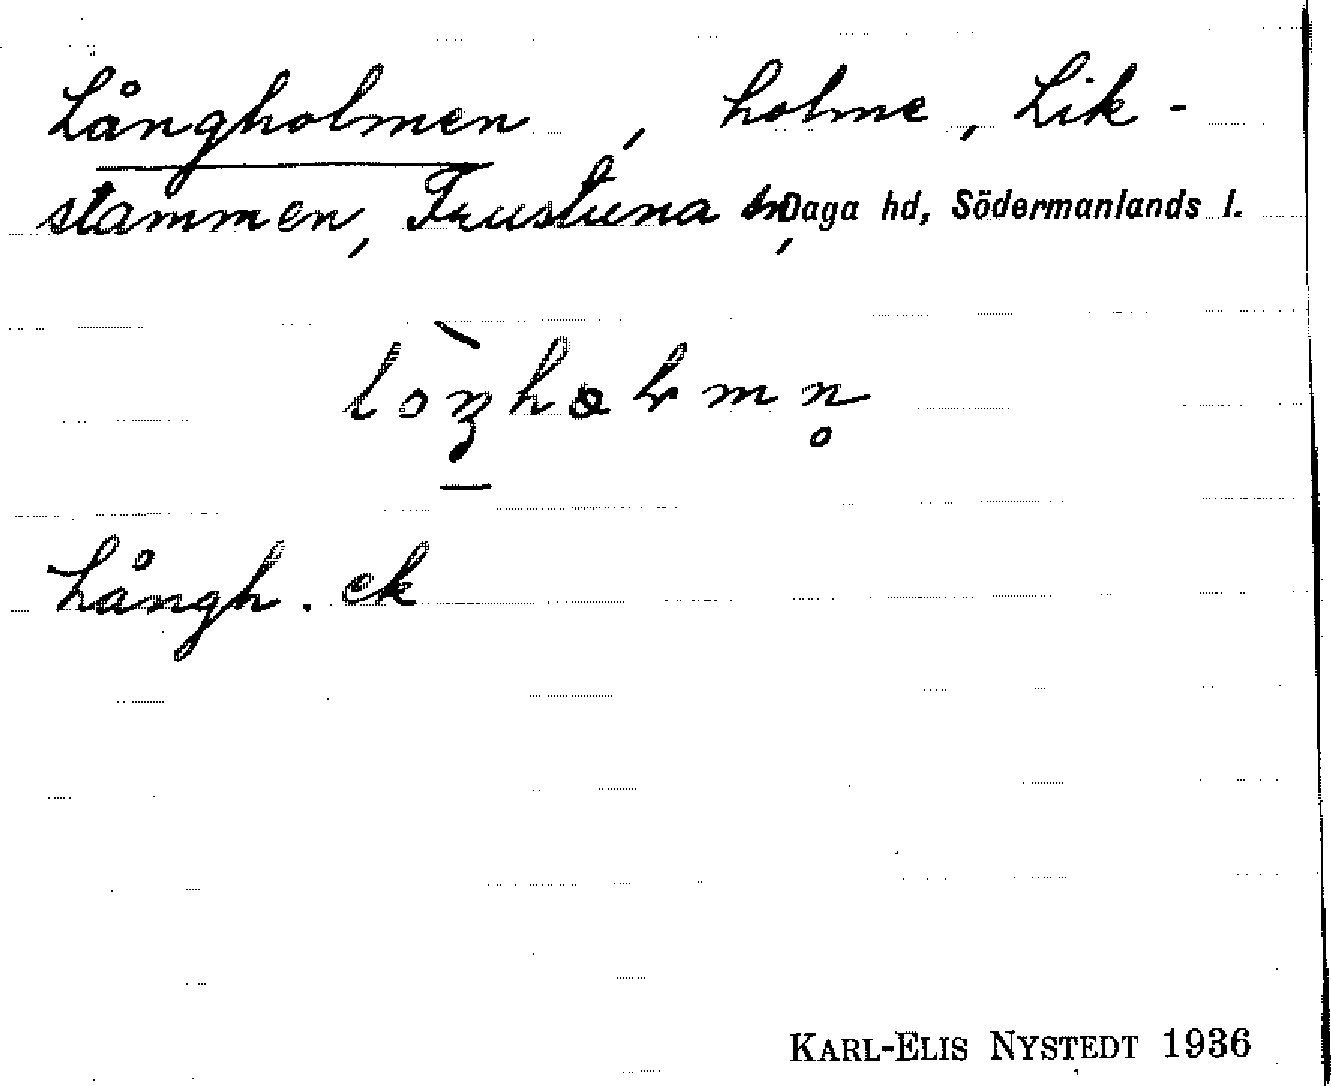 Långholmen, holme, Lik-
stammen, Frustuna sn, Daga hd, Södermanlands l.
Långh. ek
KARL-ELIS NYSTEDT 1936